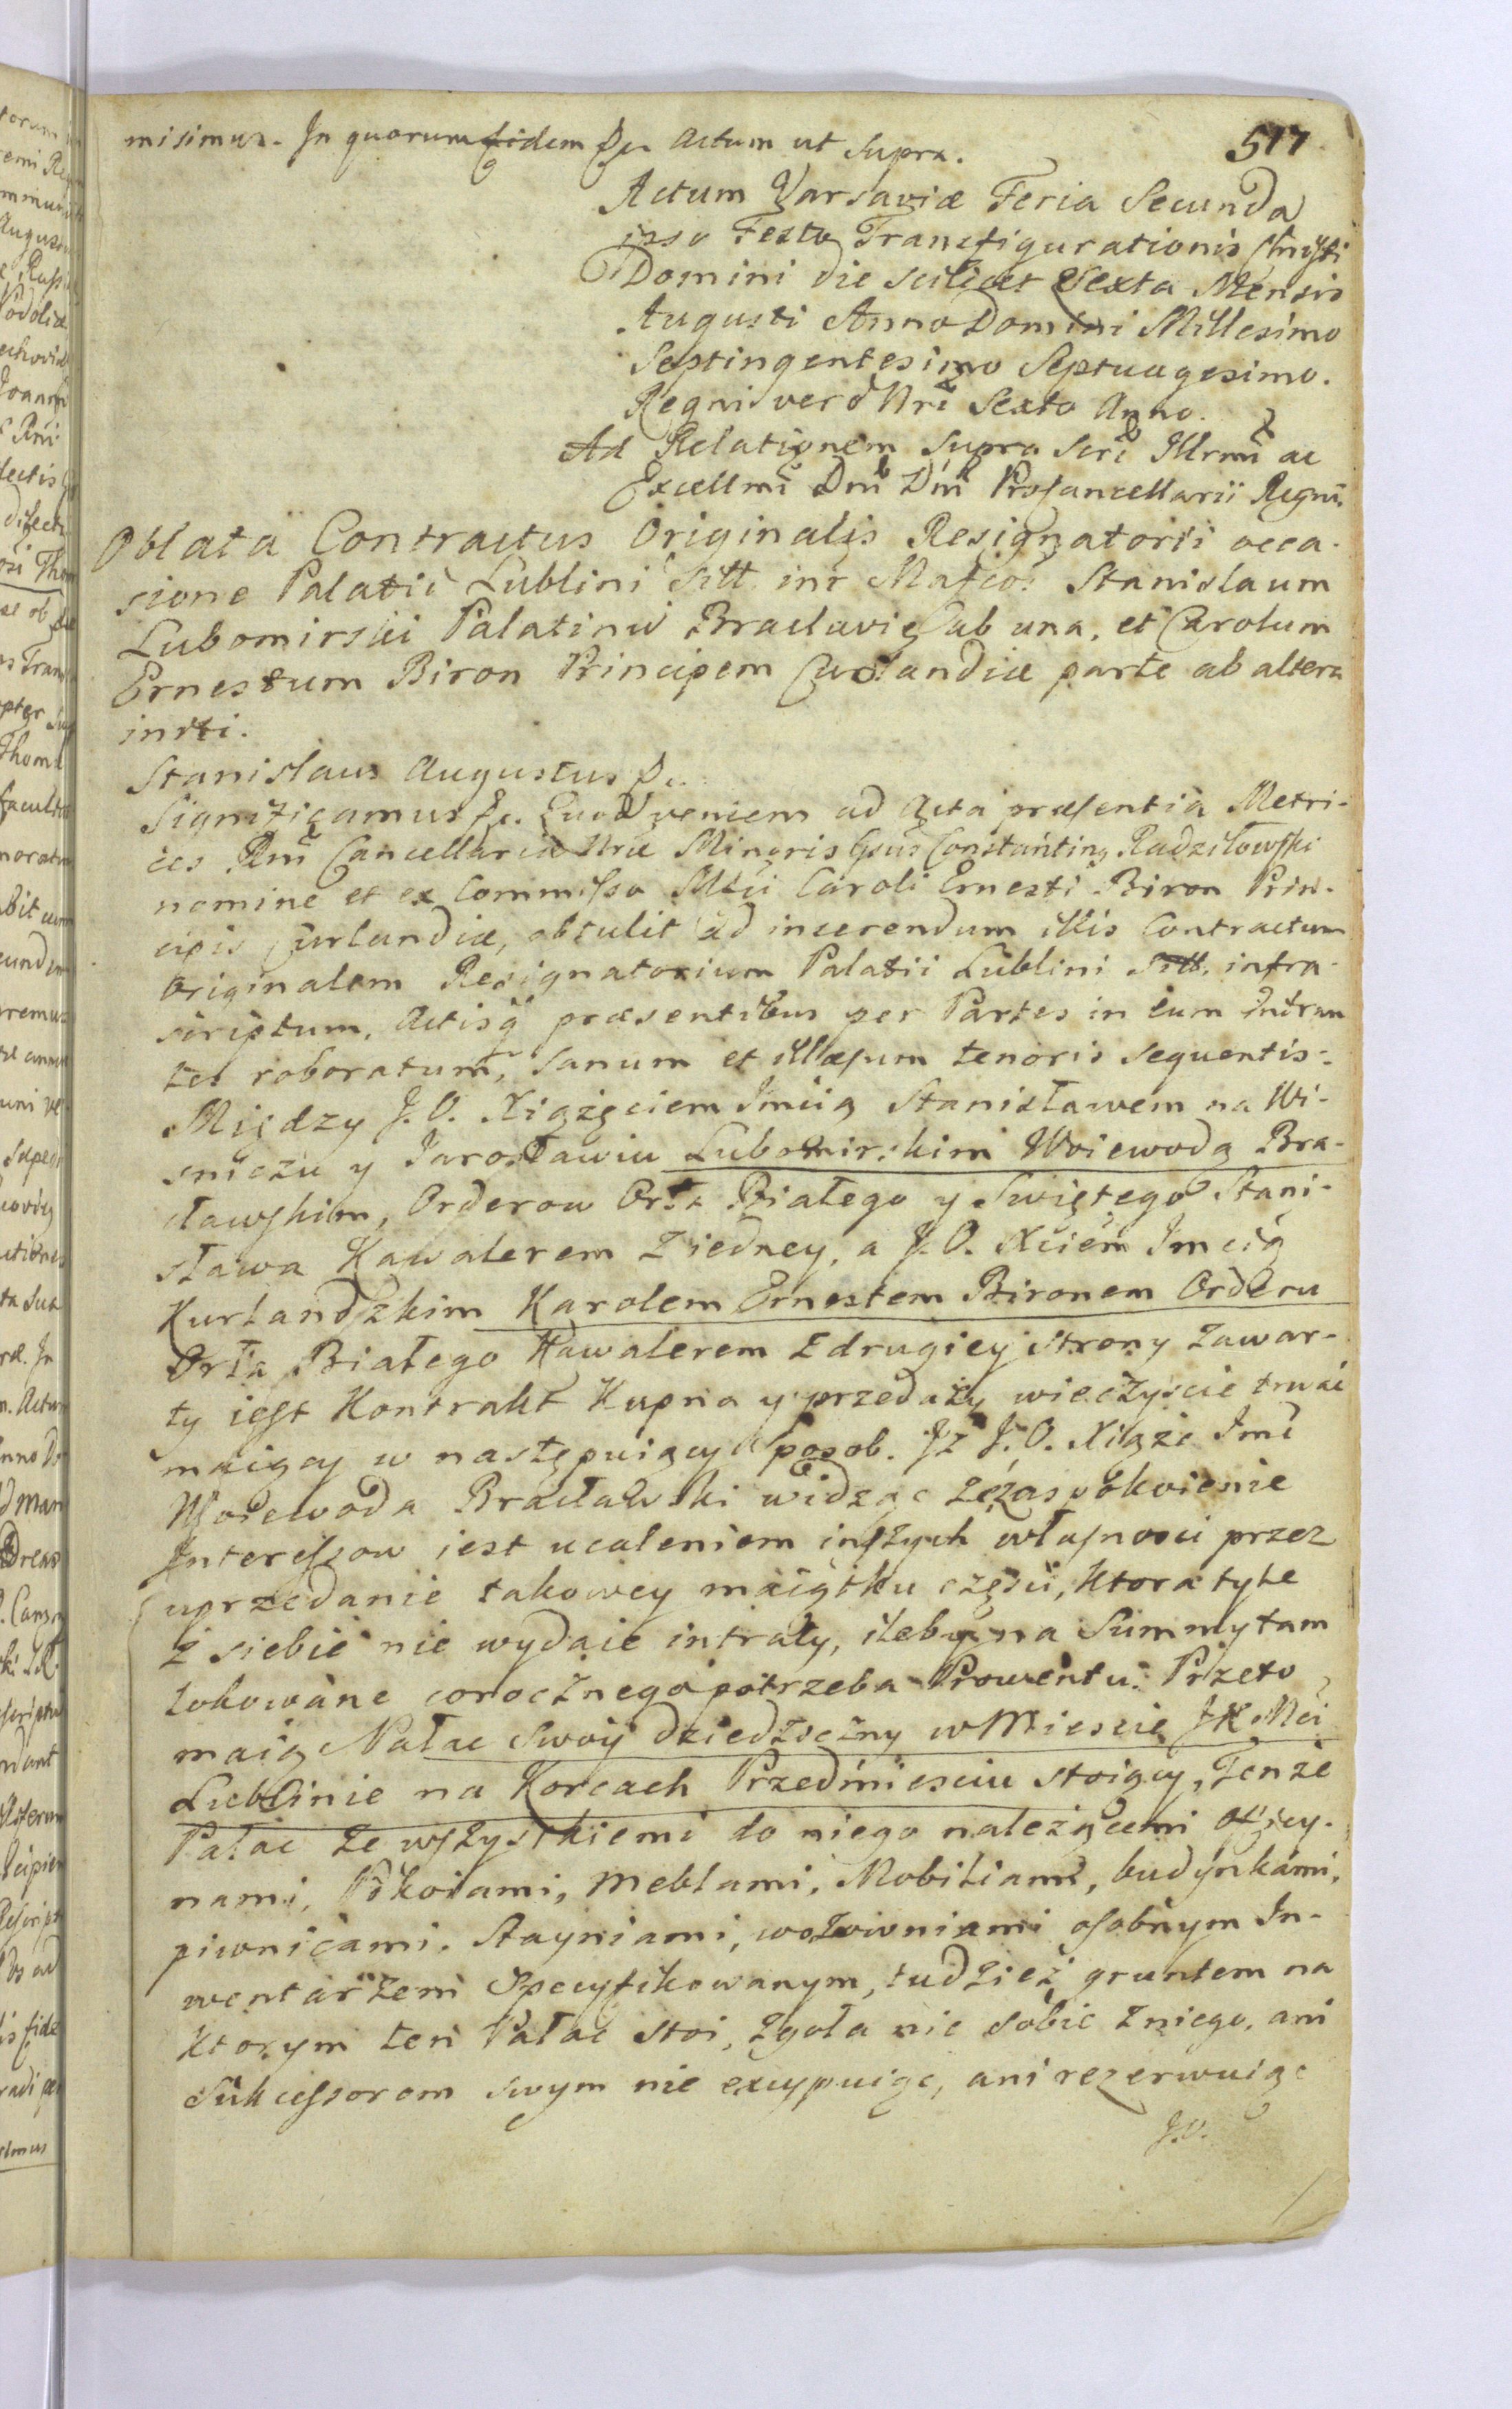 misimus. In quorum fidem &c. Actum ut Supra.
517
Actum Varsaviæ Feria Secunda
ipso Festo Transfigurationis Chrysti
Domini die scilicet Sexta Mensis
Augusti Anno Domini Millesimo
Septingentesimo Septuagesimo.
Regni vero Nri Sexto Anno.
Ad Relationem supra scri Illrmi ac
Excellmi Dni Dni Procancellarii Regni.
Oblata Contractus Originalis Resignatorii occa-
sione Palatii Lublini Sitt. inr Mafcos Stanislaum
Lubomirski Palatinū Braclavię ab una, et Carolum
Ernestum Biron Principem Curlandiæ parte ab altera
initi.
Stanislaus Augustus &c.
Significamus &c. Quod veniens ad Acta præsentia Metri-
ces Rni Cancellariæ Nræ Minoris Gsus Constantinq Radziłowski
nomine et ex Commisso Mfci Caroli Ernesti Biron Prin-
cipis Curlandiæ, obtulit ad inserendum iisdem Contractum
Originalem Resignatorium Palatii Lublini Sitt. infra-
scriptum, Actisq præsentibus per Partes in eum intran
tes roboratum, Sanum et illæsum tenoris sequentis:
Między J. O. Xiążęciem Imcią Stanisławem na Wi-
sniczu y Jarosławiu Lubomirskim Woiewodą Bra-
cławskim, Orderow Orła Białego y Swiętego Stani-
sława Kawalerem z iedney, a J. O. Xciem Imcią
Kurlandzkim Karolem Ernestem Bironem Orderu
Orła Białego Kawalerem z drugiey strony zawar-
ty iest Kontrakt Kupna y przedaży wieczyscie trwać
maiący w następuiący sposob. Iż J. O. Xiąże Imć
Woiewoda Bracławski widząc że zaspokoienie
Interessow iest ucaleniem inszych własnosci przez
uprzedanie takowey maiątku częsci, ktora tyle
z siebie nie wydaie intraty, ileby na Summy tam
lokowane corocznego potrzeba Prowentu. Przeto
maią Pałac Swoy dziedziczny w Miescie JK Mci
Lublinie na Korcach Przedmiesciu stoiący, Tenże
Pałac ze wszystkiemi do niego należącemi oficy-
nami, Pokoiami, Meblami, Mobiliami, budynkami,
piwnicami, Stayniami, wozowniami osobnym In-
wentarzem specyfikowanym, tudzież gruntem na
ktorym ten Pałac stoi, zgoła nic sobie z niego, ani
Sukcessorom swym nie excypuiąc, ani rezerwuiąc
J. O.